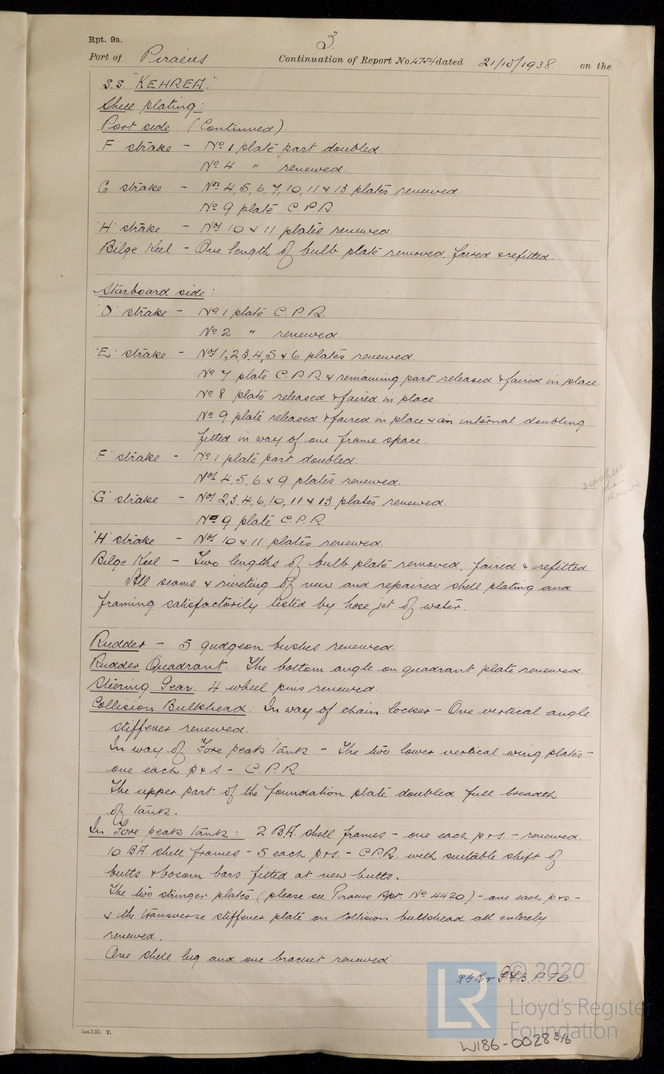 Rpt. 9a.
3.
Port of Piraeus Continuation of Report No. 4754 dated 21/10/1938 on the
S.S "KEHREA"
Shell plating:
Port side (Continued)
F strake - No 1 plate part doubled.
No 4 " renewed
G strake - Nos 4, 5, 6, 7, 10, 11 & 13 plates renewed
No 9 plate C.P.R
'H' strake - Nos 10 & 11 plates renewed
Bilge Keel - One length of bulb plate removed, faired & refitted.
Starboard side:
'D' strake - No 1 plate C.P.R.
No 2 " renewed
'E' strake - Nos 1, 2, 3, 4, 5 & 6 plates renewed.
No 7 plate C.P.R & remaining part released & faired in place
No 8 plate released & faired in place
No 9 plate released & faired in place & an internal doubling
fitted in way of one frame space
'F' strake - No 1 plate part doubled.
Nos 4, 5, 6 & 9 plates renewed.
'G' strake - Nos 2, 3, 4, 6, 10, 11 & 13 plates renewed
No 9 plate C.P.R
'H' strake - Nos 10 & 11 plates renewed
Bilge Keel - Two lengths of bulb plate removed, faired & refitted
All seams & riveting of new and repaired shell plating and
framing satisfactorily tested by hose jet of water.
Rudder - 5 gudgeon bushes renewed.
Rudder Quadrant. The bottom angle on quadrant plate renewed.
Steering Gear. 4 wheel pins renewed.
Collision Bulkhead. In way of chain locker - One vertical angle
stiffener renewed.
In way of Fore peak tank - The two lower vertical wing plates -
one each p & s - C.P.R.
The upper part of the foundation plate doubled full breadth
of tank.
In Fore peak tank: 2 B.A. shell frames - one each p & s - renewed.
10 BA shell frames - 5 each p & s. - C.P.R. with suitable shift of
butts & bosom bars fitted at new butts.
The two stringer plates (please see Piraeus Rpt No 4420) - one each, p & s -
& the transverse stiffener plate on collision bulkhead all entirely
renewed.
One shell lug and one bracket renewed.
© 2020
LR
Lloyd's Register
Foundation
W186-0028 3/6